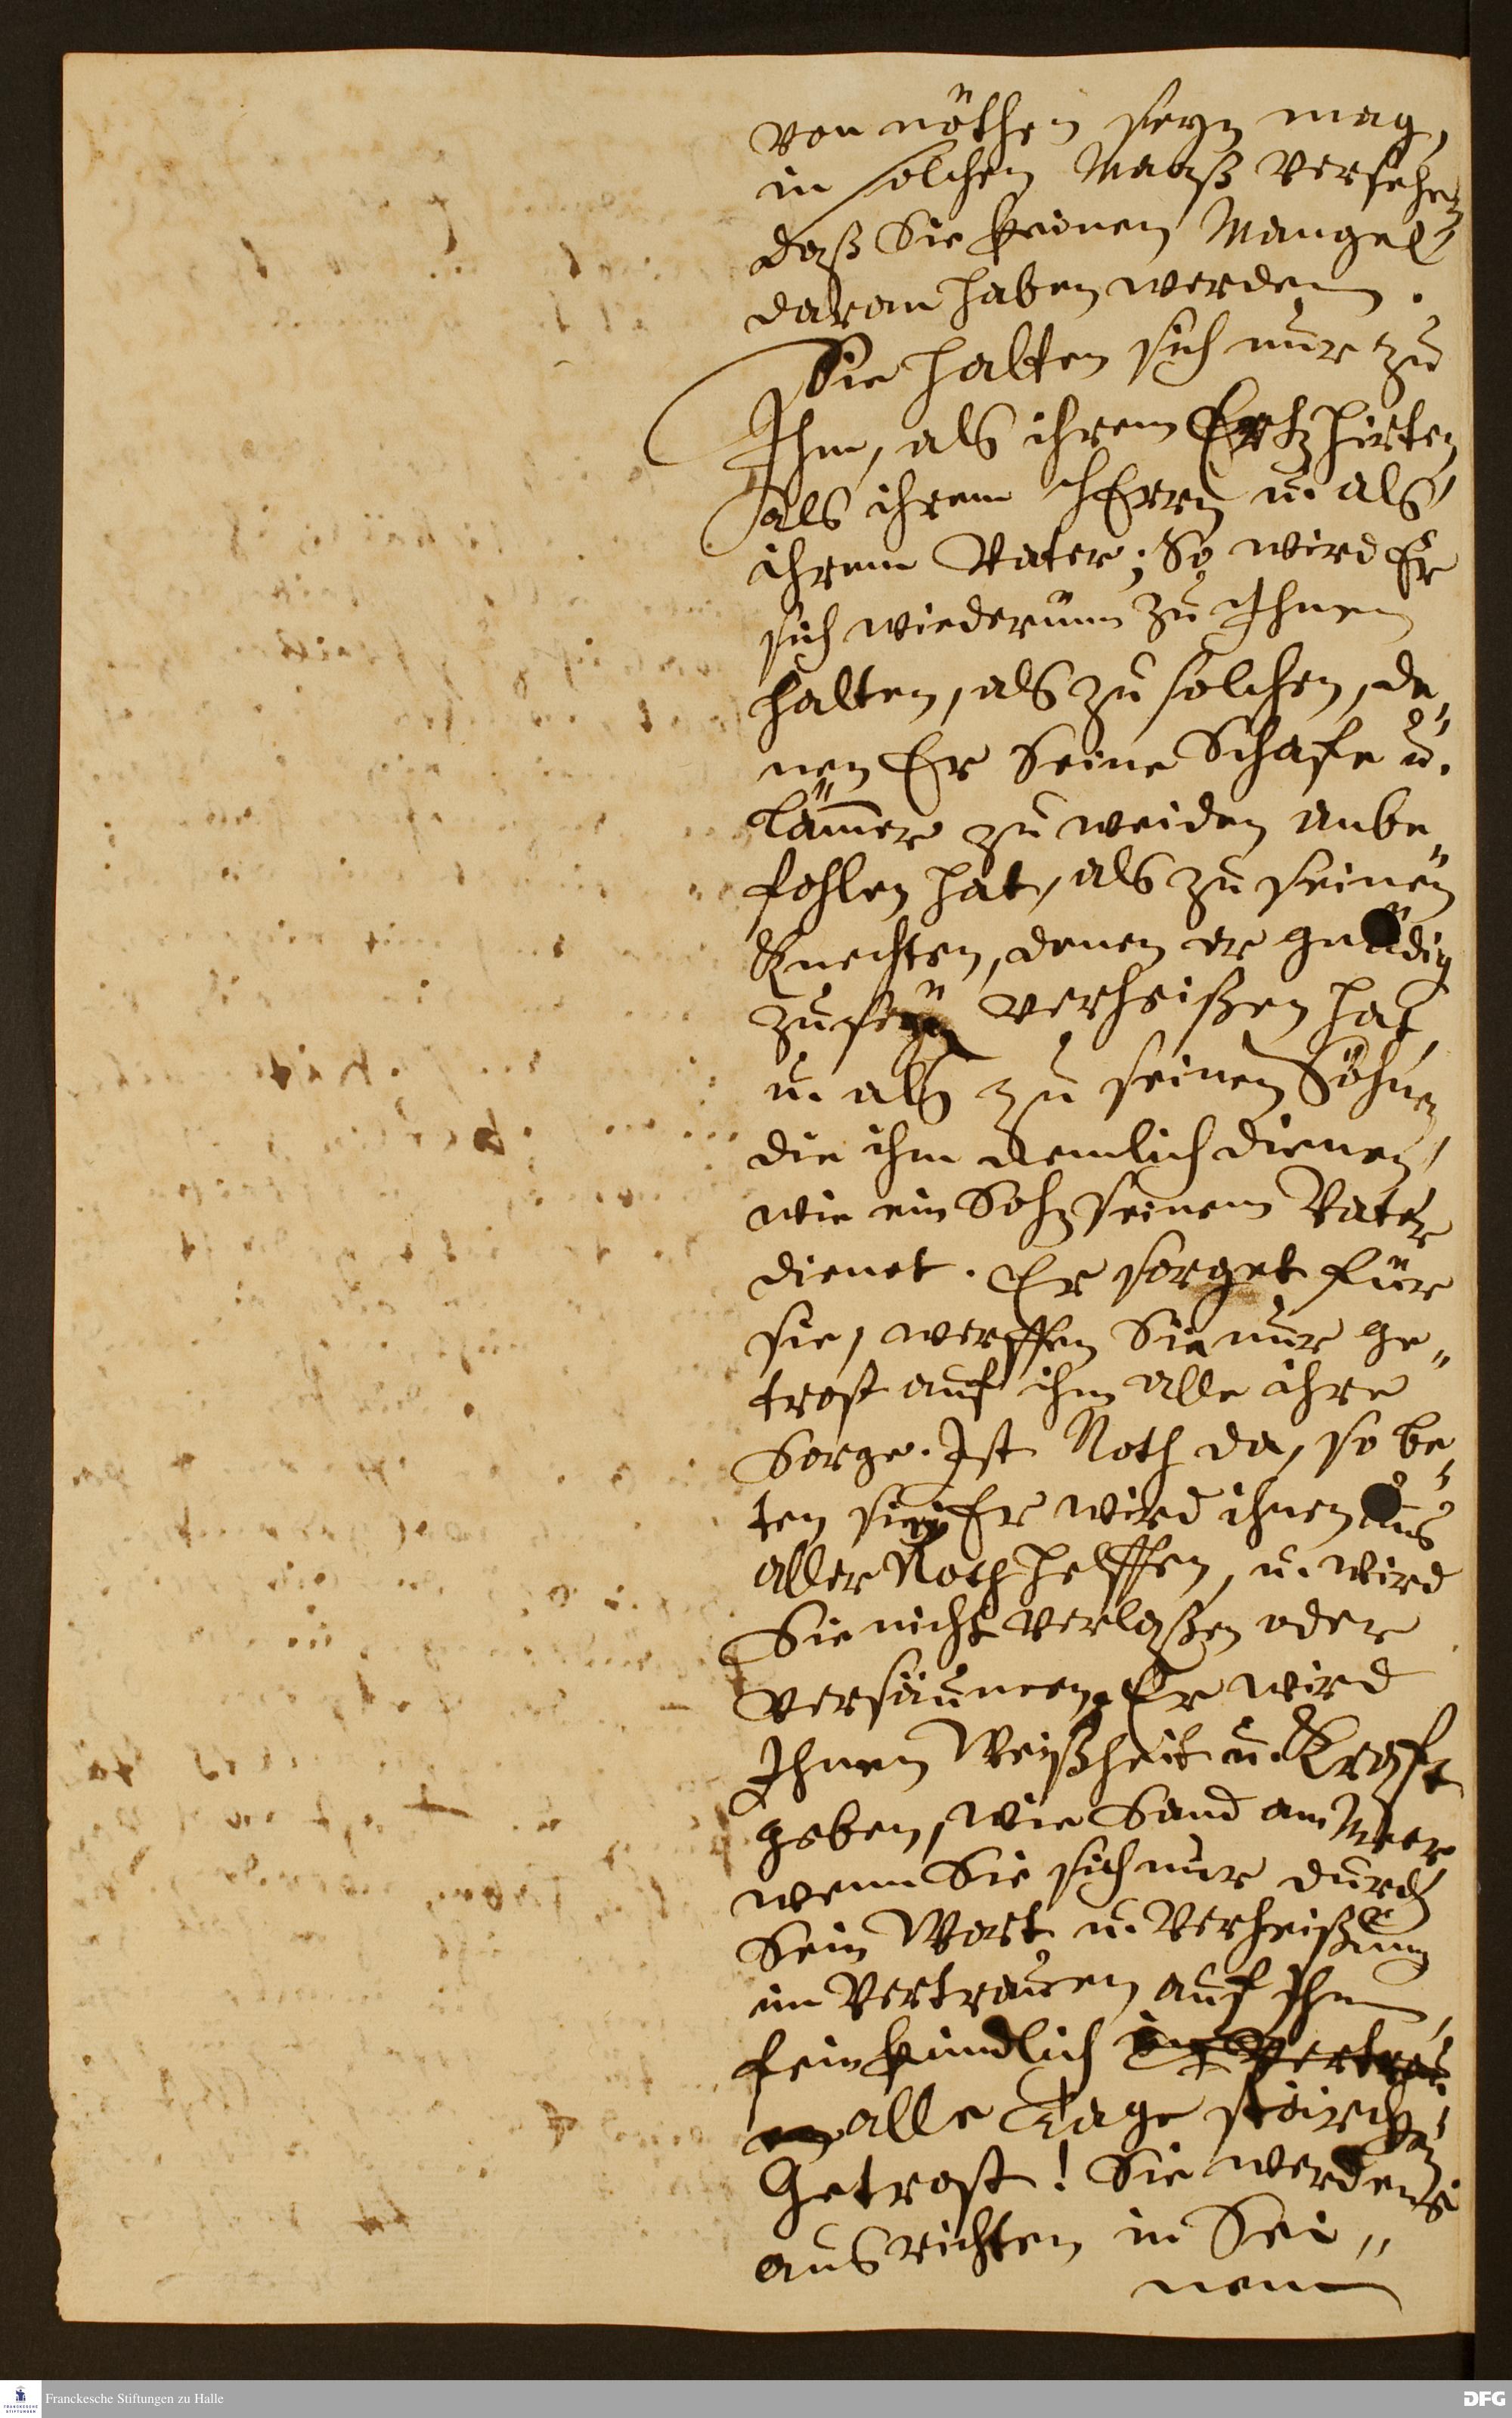 von nöthen seyn mag,
in solchem Maaß versehen,
daß Sie keinen Mangel
daran haben werden.
Sie halten sich nur zu
Ihm, als ihrem Ertzhirten,
als ihrem HErrn u. als
ihrem Vater; So wird Er
sich wiederumm zu Ihnen
halten, als zu solchen, de„
nen Er Seine Schafe u.
Lämer zu weiden anbe„
fohlen hat, als zu seinen
Knechten, denen er gnädig
zu seyn verheißen hat,
u. als zu seinen Söhnen,
die ihm kemlich dienen,
wie ein Sohn seinem Vater
dienet. Er sorget für
sie, werffen Sie nur ge„
trost auf ihn alle ihre
Sorge. Ist Noth da, so be„
ten sie; Er wird ihnen aus
aller Noth helffen, u. wird
Sie nicht verlaßen oder
versäumen. Er wird
Ihnen Weißheit u. Krafft
geben, wie Sand am Meer,
wenn Sie sich nur durch
Sein Wort u. Verheißung
im Vertrauen auf Ihn
fein kindlich im Vertrau„
en alle Tage stärcken.
Getrost! Sie werdens
ausrichten in Sei„
nem
Franckesche Stiftungen zu Halle
DFG